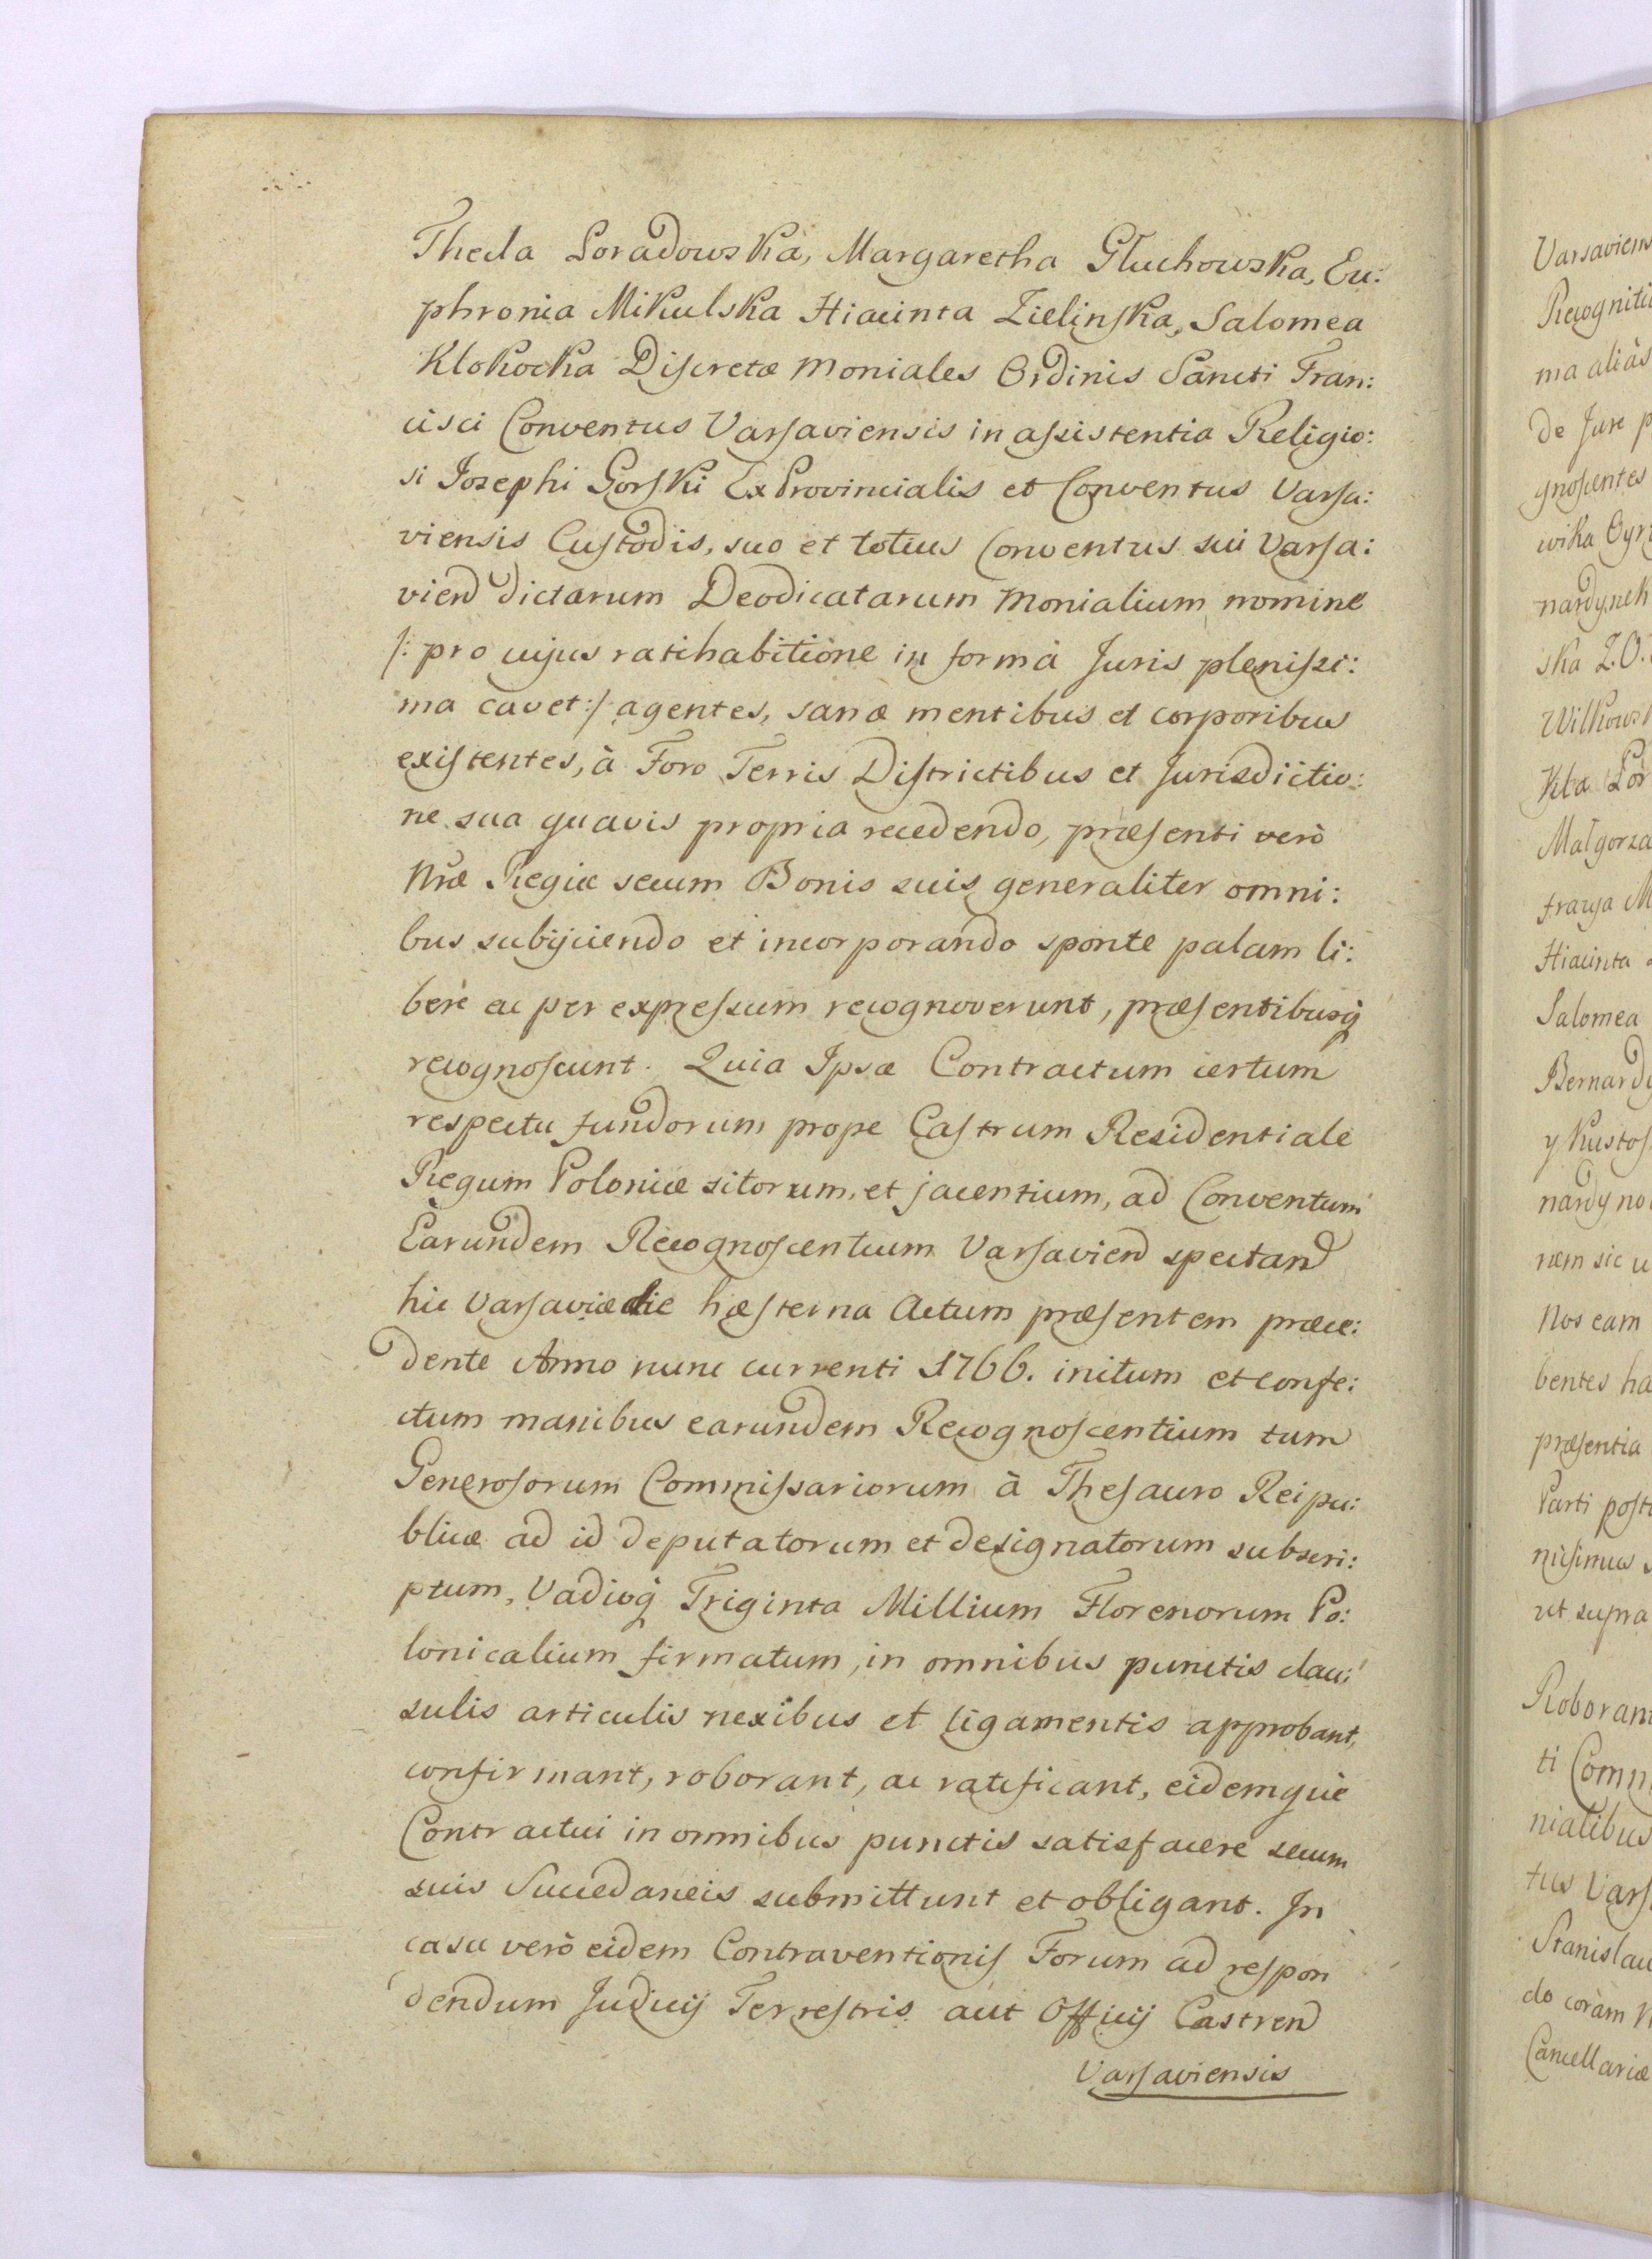 Thecla Poradowska, Margaretha Głuchowska, Eu:
phronia Mikulska Hiacinta Zielinska, Salomea
Klokocka Discretæ Moniales Ordinis Sancti Fran:
cisci Conventus Varsaviensis in assistentia Religio:
si Josephi Gorski Ex Provincialis et Conventus Varsa:
viensis Custodis, suo et totius Conventus sui Varsa:
vien dictarum Deodicatarum Monialium nomine
/: pro cujus ratihabitione in formà Juris plenissi:
ma cavet :/ agentes, sanæ mentibus et corporibus
existentes, à Foro Terris Districtibus et Jurisdictio:
ne sua quavis propria recedendo, præsenti verò
Nræ Regiæ secum Bonis suis generaliter omni:
bus subijciendo et incorporando sponte palam li:
berè ac per expressum recognoverunt, præsentibusq
recognoscunt. Quia Ipsæ Contractum certum
respectu fundorum prope Castrum Residentiale
Regum Poloniæ sitorum, et jacentium, ad Conventum
Earundem Recognoscentium Varsavien spectan
hic Varsaviæ die hæsterna Actum præsentem præce:
dente Anno nunc currenti 1766. initum et confe:
ctum manibus earundem Recognoscentium tum
Generosorum Commissariorum à Thesauro Reipu:
blicæ ad id deputatorum et designatorum subscri:
ptum, Vadioq Triginta Millium Florenorum Po:
lonicalium firmatum, in omnibus punctis clau:
sulis articulis nexibus et ligamentis approbant,
confirmant, roborant, ac ratificant, eidemque
Contractui in omnibus punctis satisfacere secum
suis Succedaneis submittunt et obligant. In
casu verò eidem Contraventionis Forum ad respon
dendum Judicij Terrestris aut Officij Castren
Varsaviensis
Varsavien
Recogniti
ma aliàs
de Jure p
gnoscentes
wika Gyr
nardynek
ska Z.O.
Wilkows
kla Por
Małgorza
frazya M
Hiacinta
Salomea
Bernardy
y Kustos
nardyno
ræm sic u
Nos eam
bentes ha
præsentia
Parti post
misimus
ut supra
Roboran
ti Comm
nialibus
tus Vars
Stanislau
do coram N
Cancellariæ